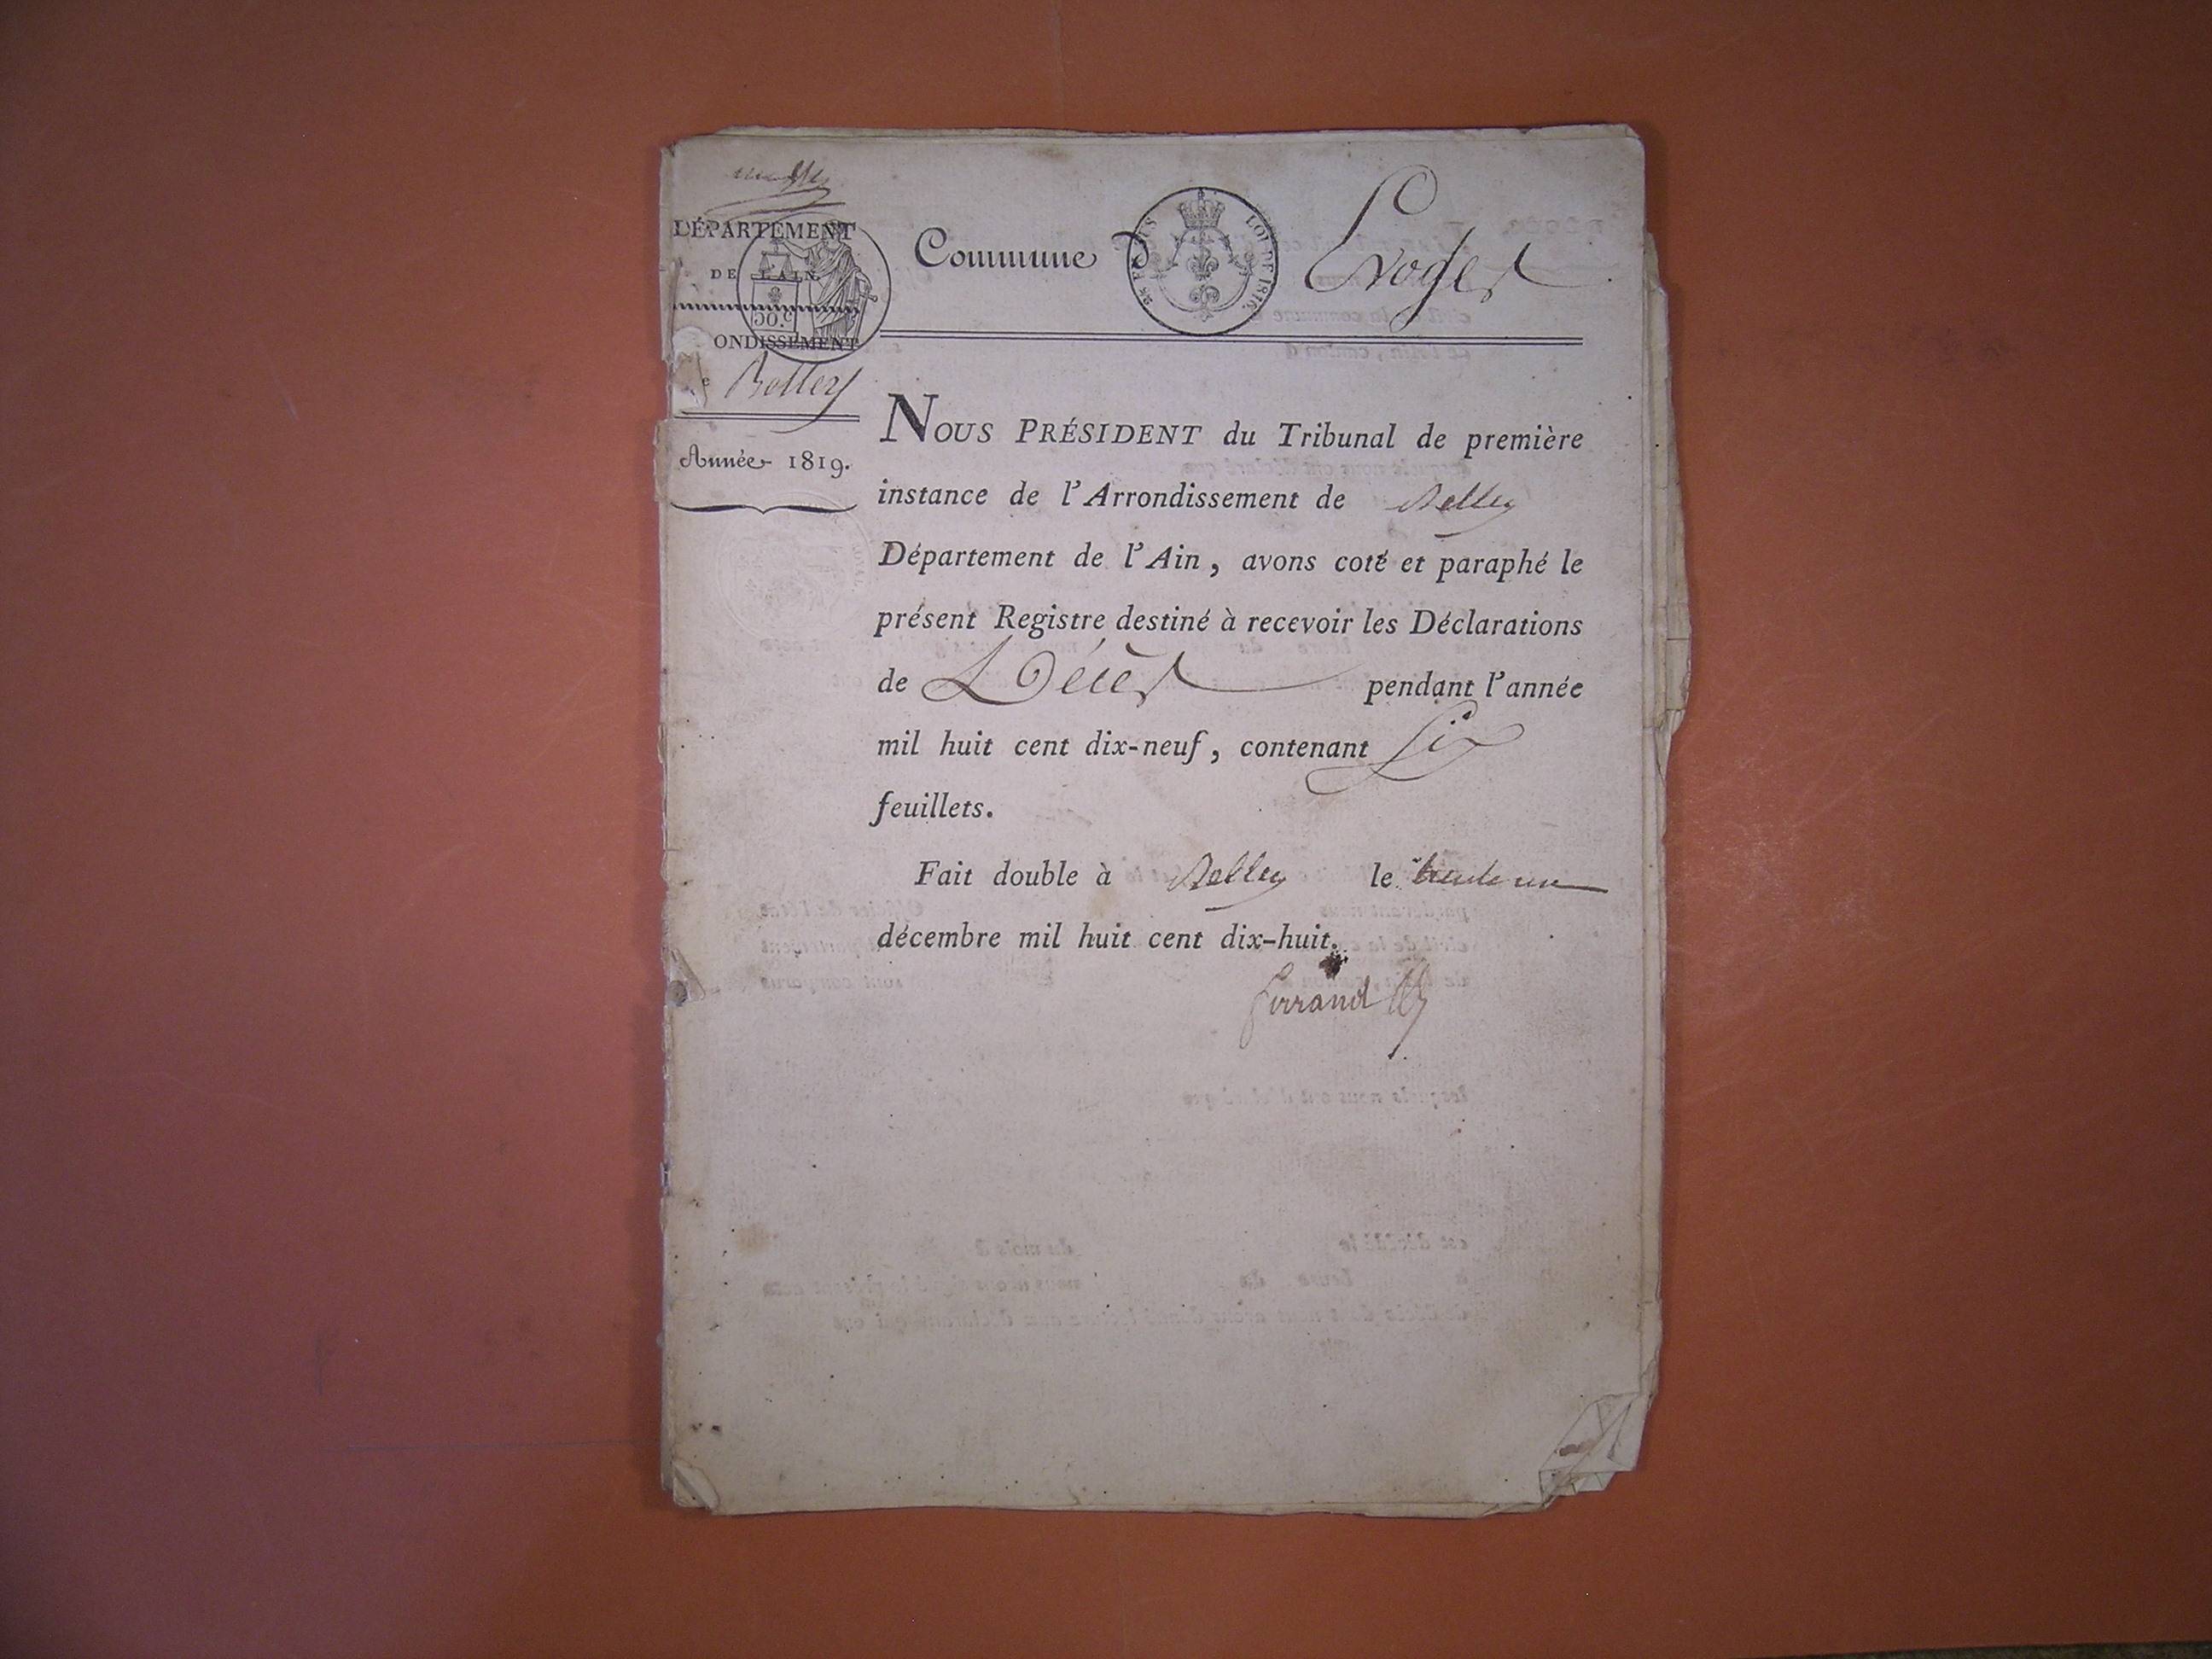 DÉPARTEMENT
DE L'AIN.
50.c
ONDISSEMENT
e Belley
Année 1819.
Commune d' Evoges
LOI DE 1816.
NOUS PRÉSIDENT du Tribunal de première
instance de l'Arrondissement de Belley
Département de l'Ain, avons coté et paraphé le
présent Registre destiné à recevoir les Déclarations
de Décès pendant l'année
mil huit cent dix-neuf, contenant Six
feuillets.
Fait double à Belley le trente un
décembre mil huit cent dix-huit.
ferrand